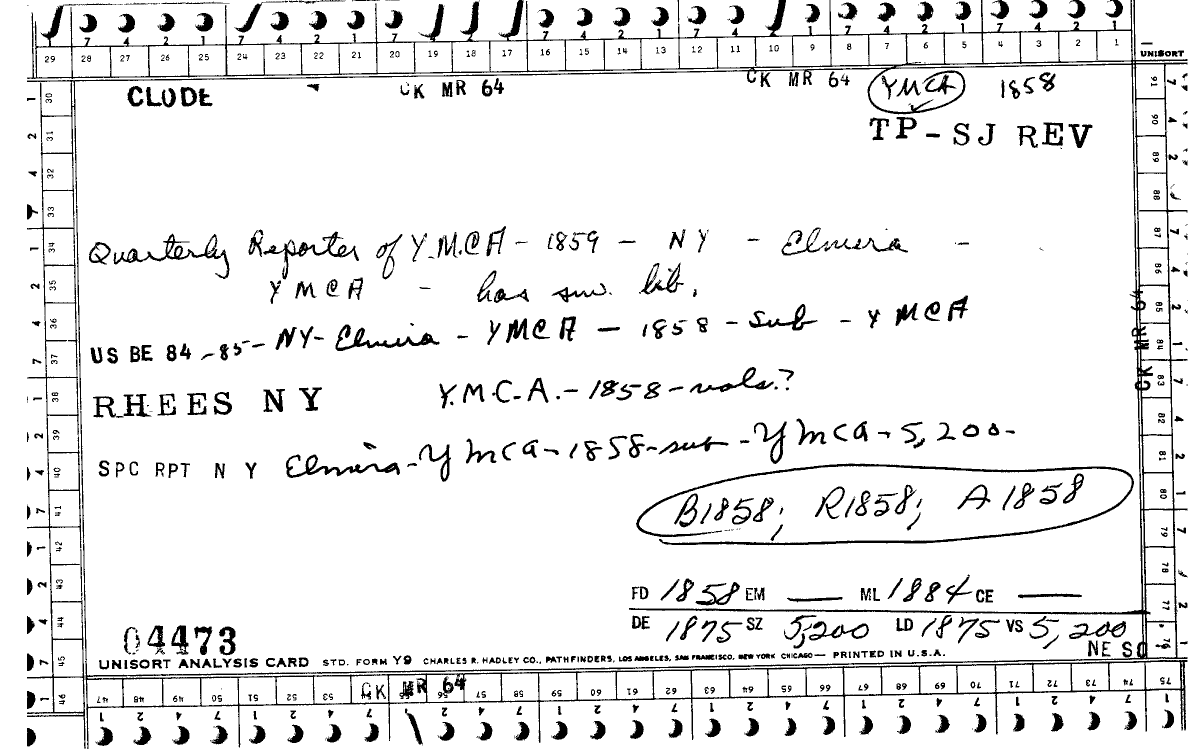 7 4 2 1 7 4 2 1 7 4 2 1 7 4 2 1 7 4 2 1 7 4 2 1
29 28 27 26 25 24 23 22 21 20 19 18 17 16 15 14 13 12 11 10 9 8 7 6 5 4 3 2 1 UNISORT
CLODE CK MR 64 CK MR 64 YMCA 1858
TP-SJ REV
Quarterly Reporter of Y.M.C.A - 1859 - NY - Elmira -
YMCA - has sm. lib.
US BE 84-85- NY- Elmira - YMCA - 1858 - sub - YMCA
RHEES NY Y.M.C.A. - 1858 - vols.?
SPC RPT N Y Elmira - YMCA - 1858 - sub - YMCA - 5,200 -
B1858; R1858; A1858
FD 1858 EM — ML 1884 CE —
DE 1875 SZ 5,200 LD 1875 VS 5,200
04473
NE SO
UNISORT ANALYSIS CARD STD. FORM Y9 CHARLES R. HADLEY CO., PATHFINDERS, LOS ANGELES, SAN FRANCISCO, NEW YORK CHICAGO — PRINTED IN U.S.A.
CK MR 64
CK MR 64
30 31 32 33 34 35 36 37 38 39 40 41 42 43 44 45 46
47 48 49 50 51 52 53 54 55 56 57 58 59 60 61 62 63 64 65 66 67 68 69 70 71 72 73 74 75
76 77 78 79 80 81 82 83 84 85 86 87 88 89 90 91